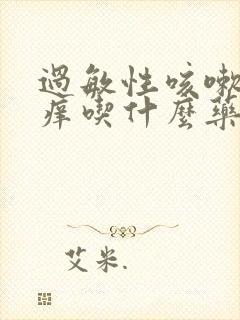 過敏性咳嗽
癢喫什麼藥
艾米.